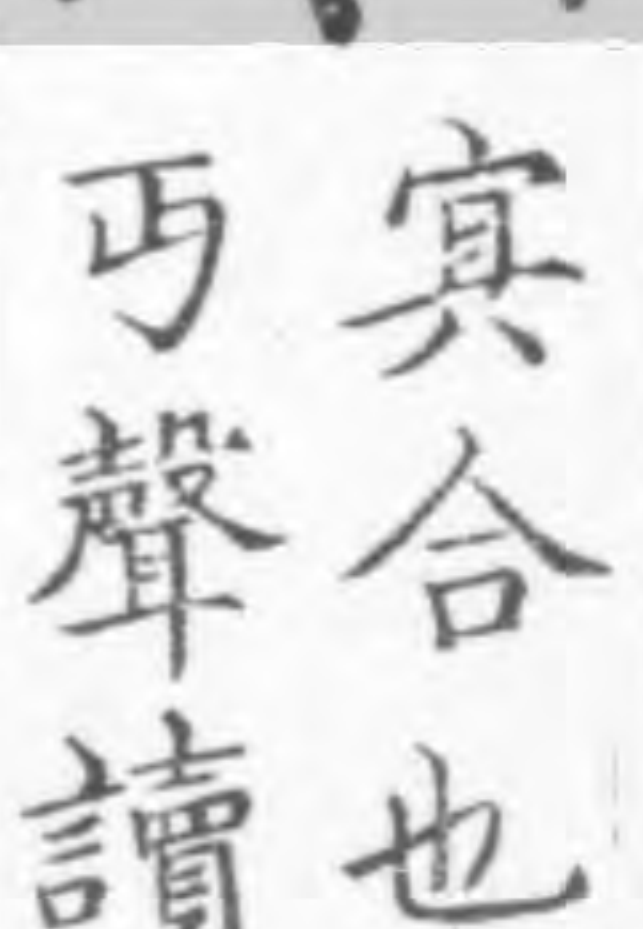 㝠合也
丏聲讀